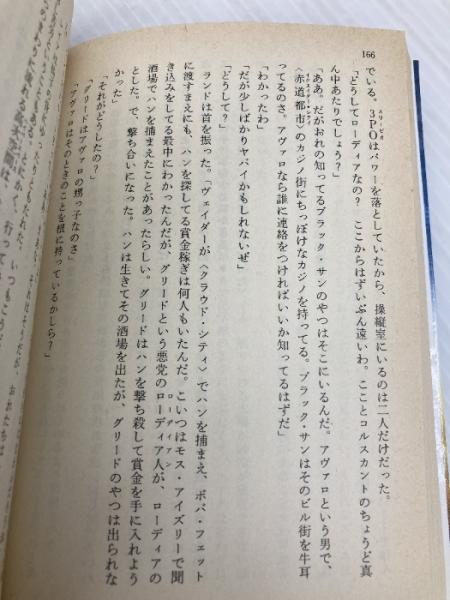 166
でいる。3POはパワーを落としていたから、操縦室にいるのは二人だけだった。
「どうしてローディアなの? ここからはずいぶん遠いわ。こことコルスカントのちょうど真
ん中あたりでしょう?」
「ああ。だがおれの知ってるブラック・サンのやつはそこにいるんだ。アヴァロという男で、
〈赤道都市〉のカジノ街にちっぽけなカジノを持ってる。ブラック・サンはそのビル街を牛耳
ってるのさ。アヴァロなら誰に連絡をつければいいか知ってるはずだ」
「わかったわ」
「だが少しばかりヤバイかもしれないぜ」
「どうして?」
ランドは首を振った。「ヴェイダーが〈クラウド・シティ〉でハンを捕まえ、ボバ・フェット
に渡すまえにも、ハンを探してる賞金稼ぎは何人もいたんだ。こいつはモス・アイズリーで聞
き込みをしてる最中にわかったんだが、グリードという悪党のローディア人が、ローディアの
酒場でハンを捕まえたことがあったらしい。グリードはハンを撃ち殺して賞金を手に入れよう
とした。で、撃ち合いになった。ハンは生きてその酒場を出たが、グリードのやつは出られな
かった」
「それがどうしたの?」
「グリードはアヴァロの甥っ子なのさ」
「アヴァロはそのときのことを根に持っているかしら?」